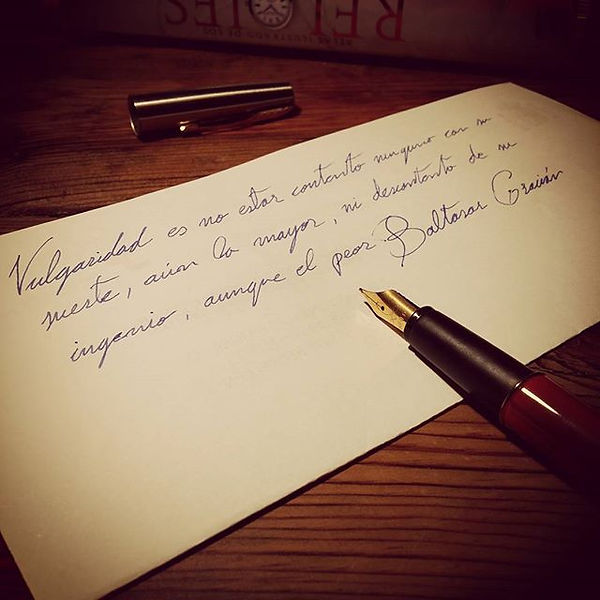 RELOJES
ATLAS ILUSTRADO DE LOS
Vulgaridad es no estar contento ninguno con su
suerte, aún la mayor, ni descontento de su
ingenio, aunque el peor. Baltasar Gracián